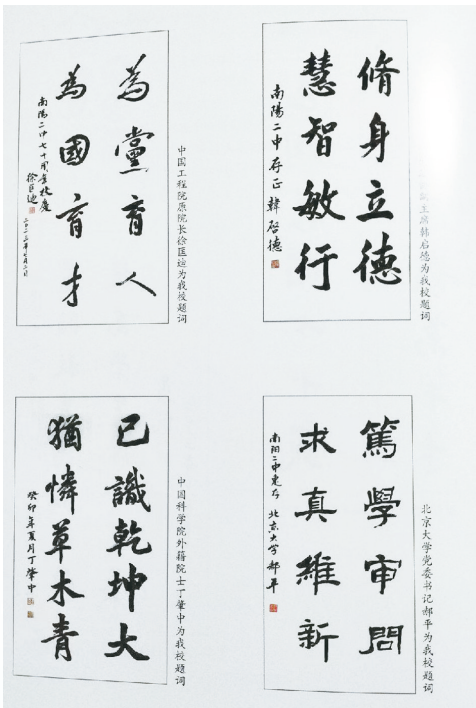 脩身立德
慧智敏行
南陽二中存正 韓啓德
主席韩启德为我校题词
為黨育人
為國育才
南陽二中七十周年校慶
徐匡迪
二〇二三年七月二日
中国工程院原院长徐匡迪为我校题词
篤學審問
求真維新
南阳二中惠存 北京大学 郝平
北京大学党委书记郝平为我校题词
已識乾坤大
猶憐草木青
癸卯年夏月丁肇中
中国科学院外籍院士丁肇中为我校题词